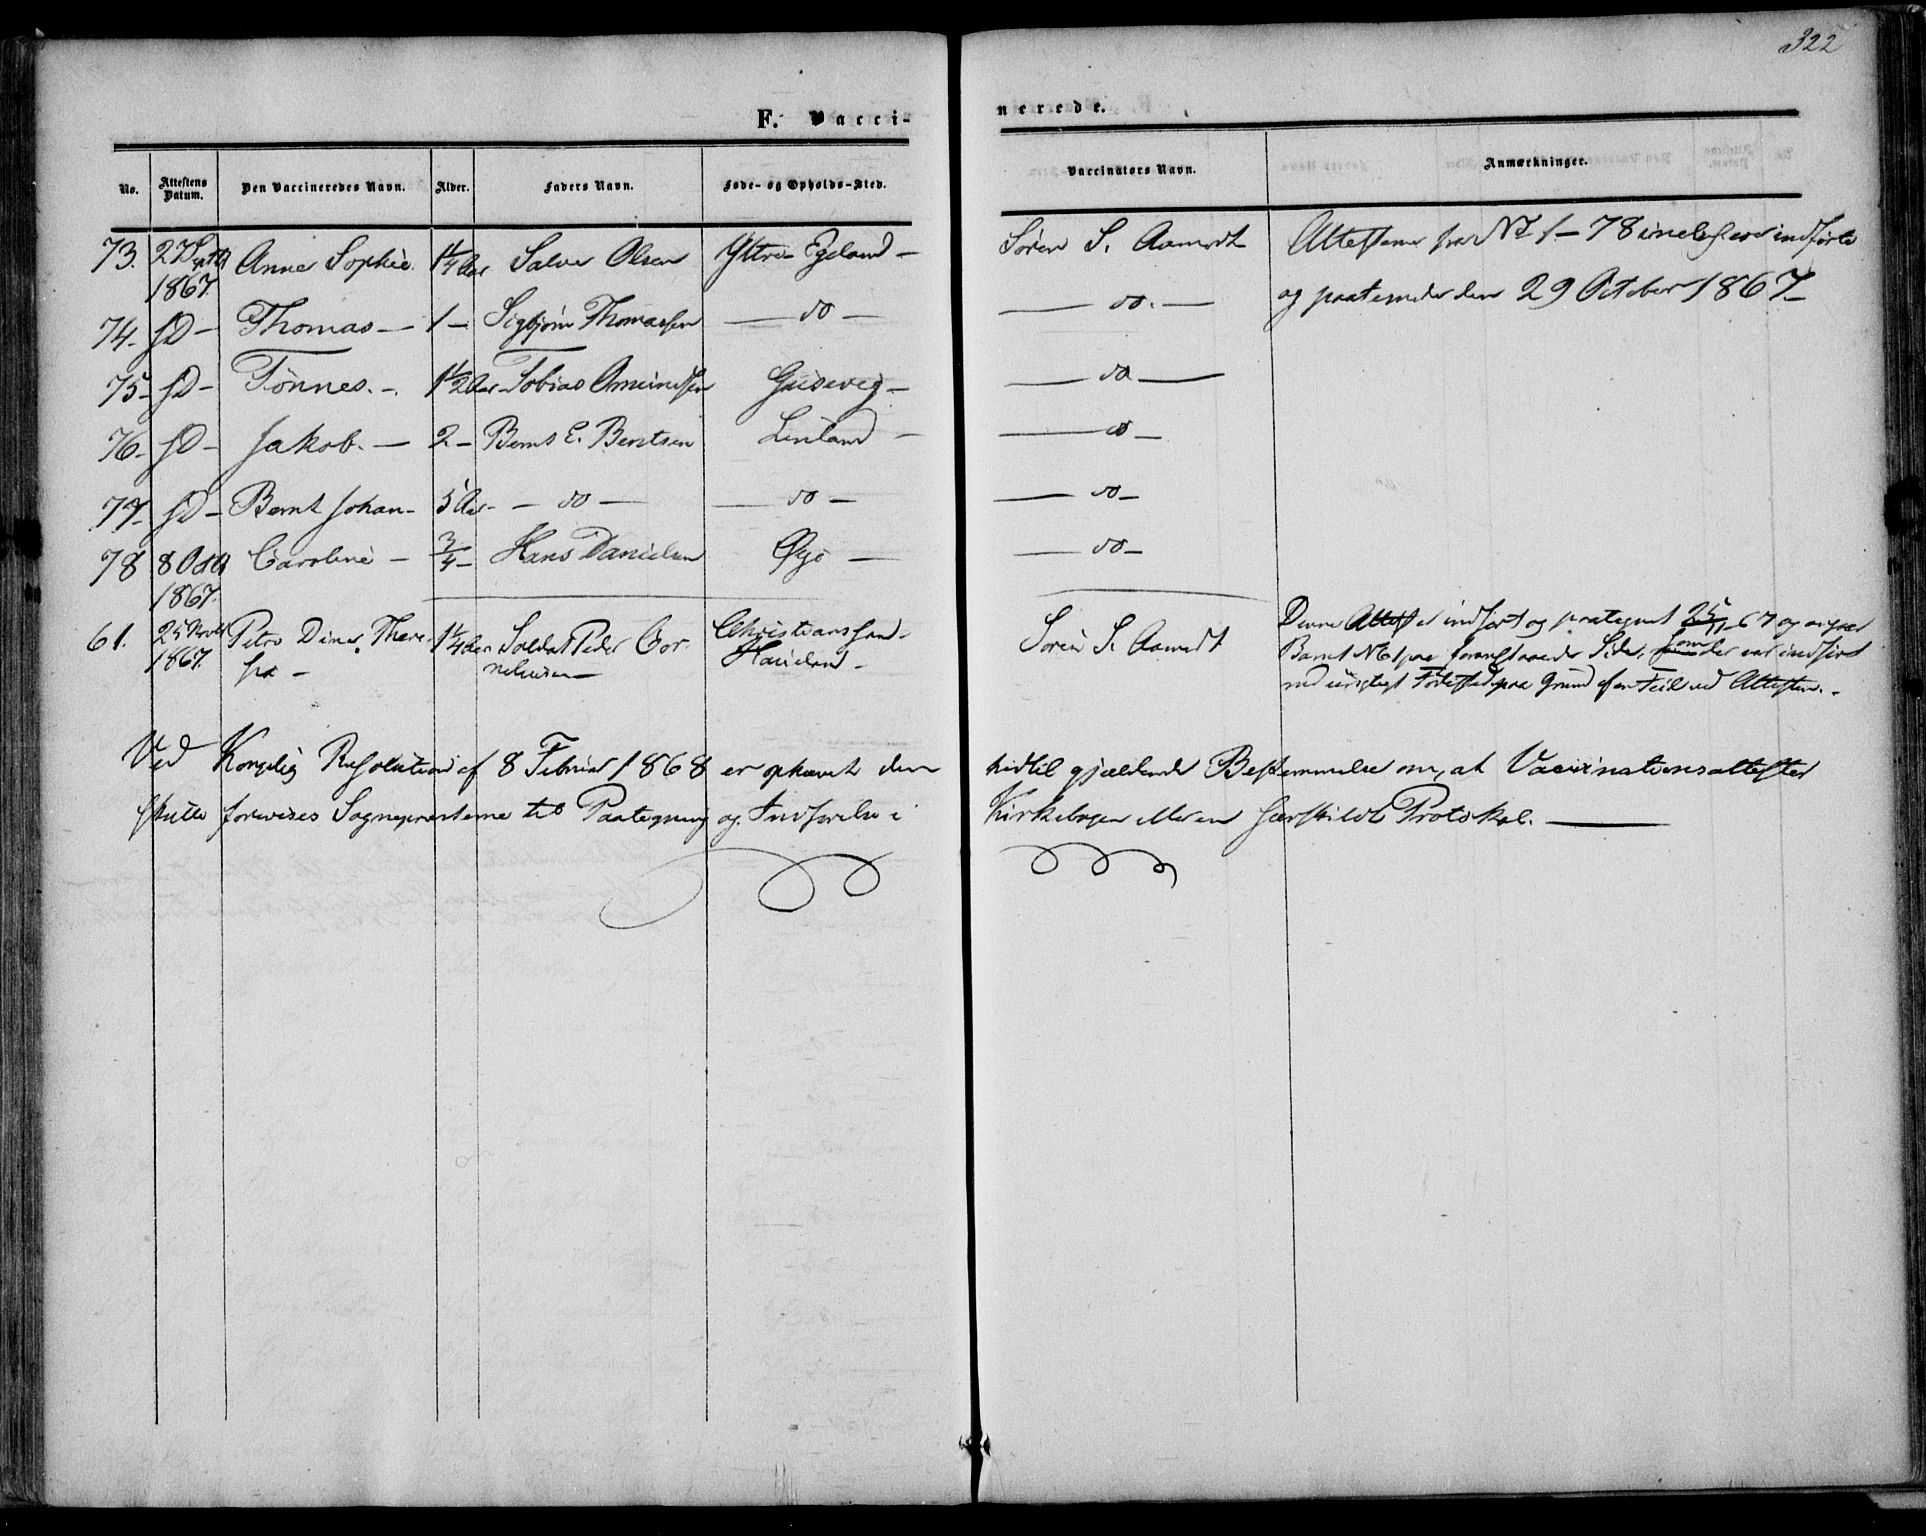 322
F. Vacci-
nerede.
No. Attestens Datum. Den Vaccineredes Navn. Alder. Faders Navn. Føde- og Opholds-Sted. Vaccinators Navn. Anmærkninger.
73. 27 Septb 1867. Anne Sophie. 1 1/4 Aar Salve Olsen Yttre Egeland - Søren S. Aamodt Attesterne fra No 1 - 78 incl. ere indførte
og paategnede den 29 October 1867 -
74. SD - Thomas - 1 - Sigbjørn Thomassen - do - - do. -
75 - SD - Tønnes. - 1 1/2 Aar Tobias Amundsen Guseveg - - do -
76 - SD - Jakob. - 2 - Bernt E. Bentsen Linland - - do -
77 - SD - Bernt Johan - 5 Aar - - do - - do - - do -
78 8 Octb 1867. Caroline - 3/4 - Hans Danielsen Øye - - do -
61. 25 Novbr 1867. Petra Dine There-
sa - 1 1/4 Aar Soldat Peder Cor-
neliusen - Christianssand -
Haueland - Søren S. Aamodt Denne Attest er indført og paategnet 25/11 67 og angaar
Barnet No 61 paa foranstaaende Side, som der var indført
med urigtigt Fødested paa Grund af en Feil ved Attesten. -
Ved Kongelig Resolution af 8 Februar 1868 er ophævet den hidtil gjældende Bestemmelse om, at Vaccinationsattester
skulle forevises Sognepræsterne til Paategning og Indførelse i Kirkebogen eller en særskildt Protokol. -